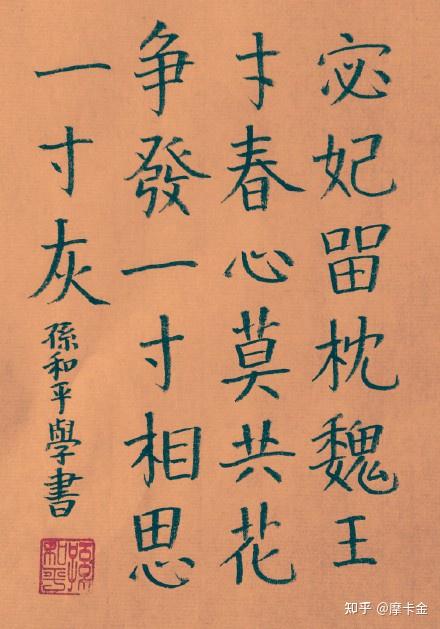 宓妃留枕魏王
才春心莫共花
争發一寸相思
一寸灰
孫和平學書
孫和平
知乎 @摩卡金